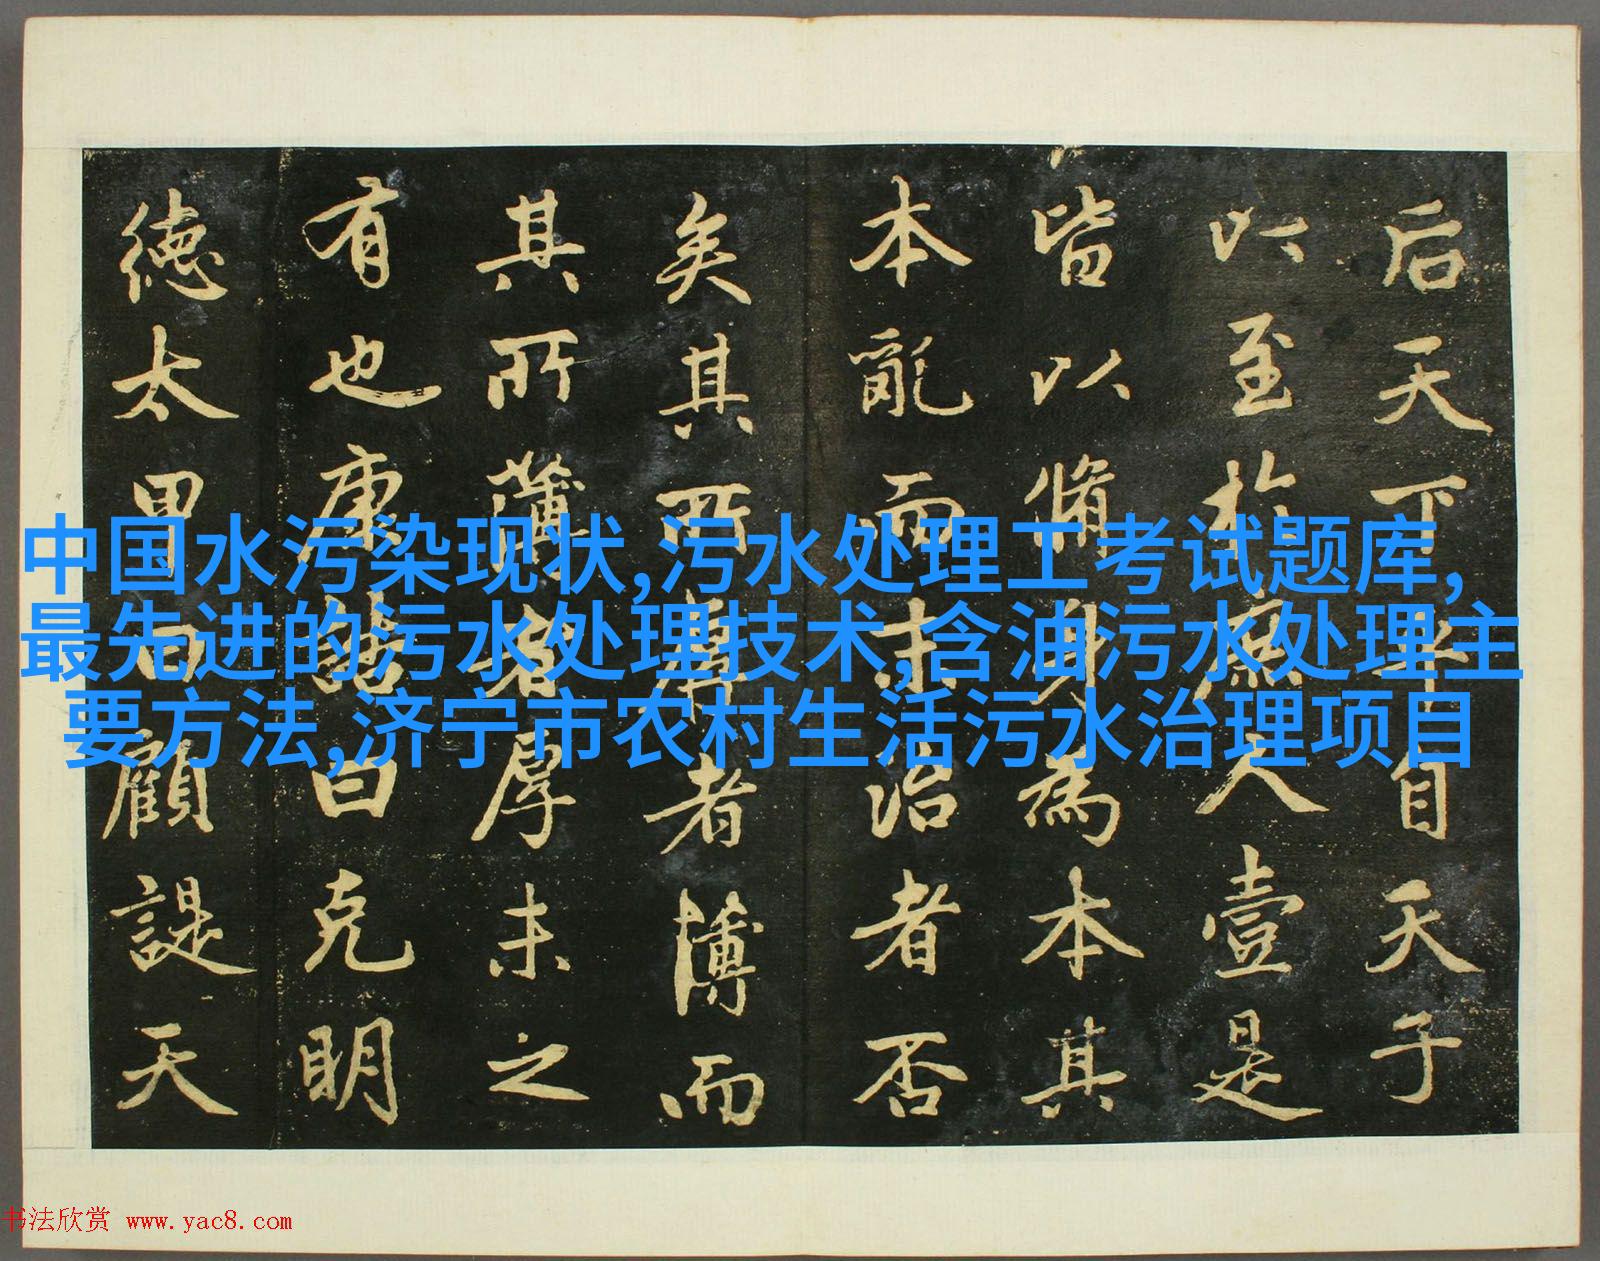 后天下平自天子
以至於庶人壹是
皆以脩身為本其
本亂而求治者否
矣其所厚者薄而
其所薄者厚未之
有也康誥曰克明
德太甲曰顧諟天
中国水污染现状,污水处理工考试题库,
最先进的污水处理技术,含油污水处理主
要方法,济宁市农村生活污水治理项目
书法欣赏 www.yac8.com